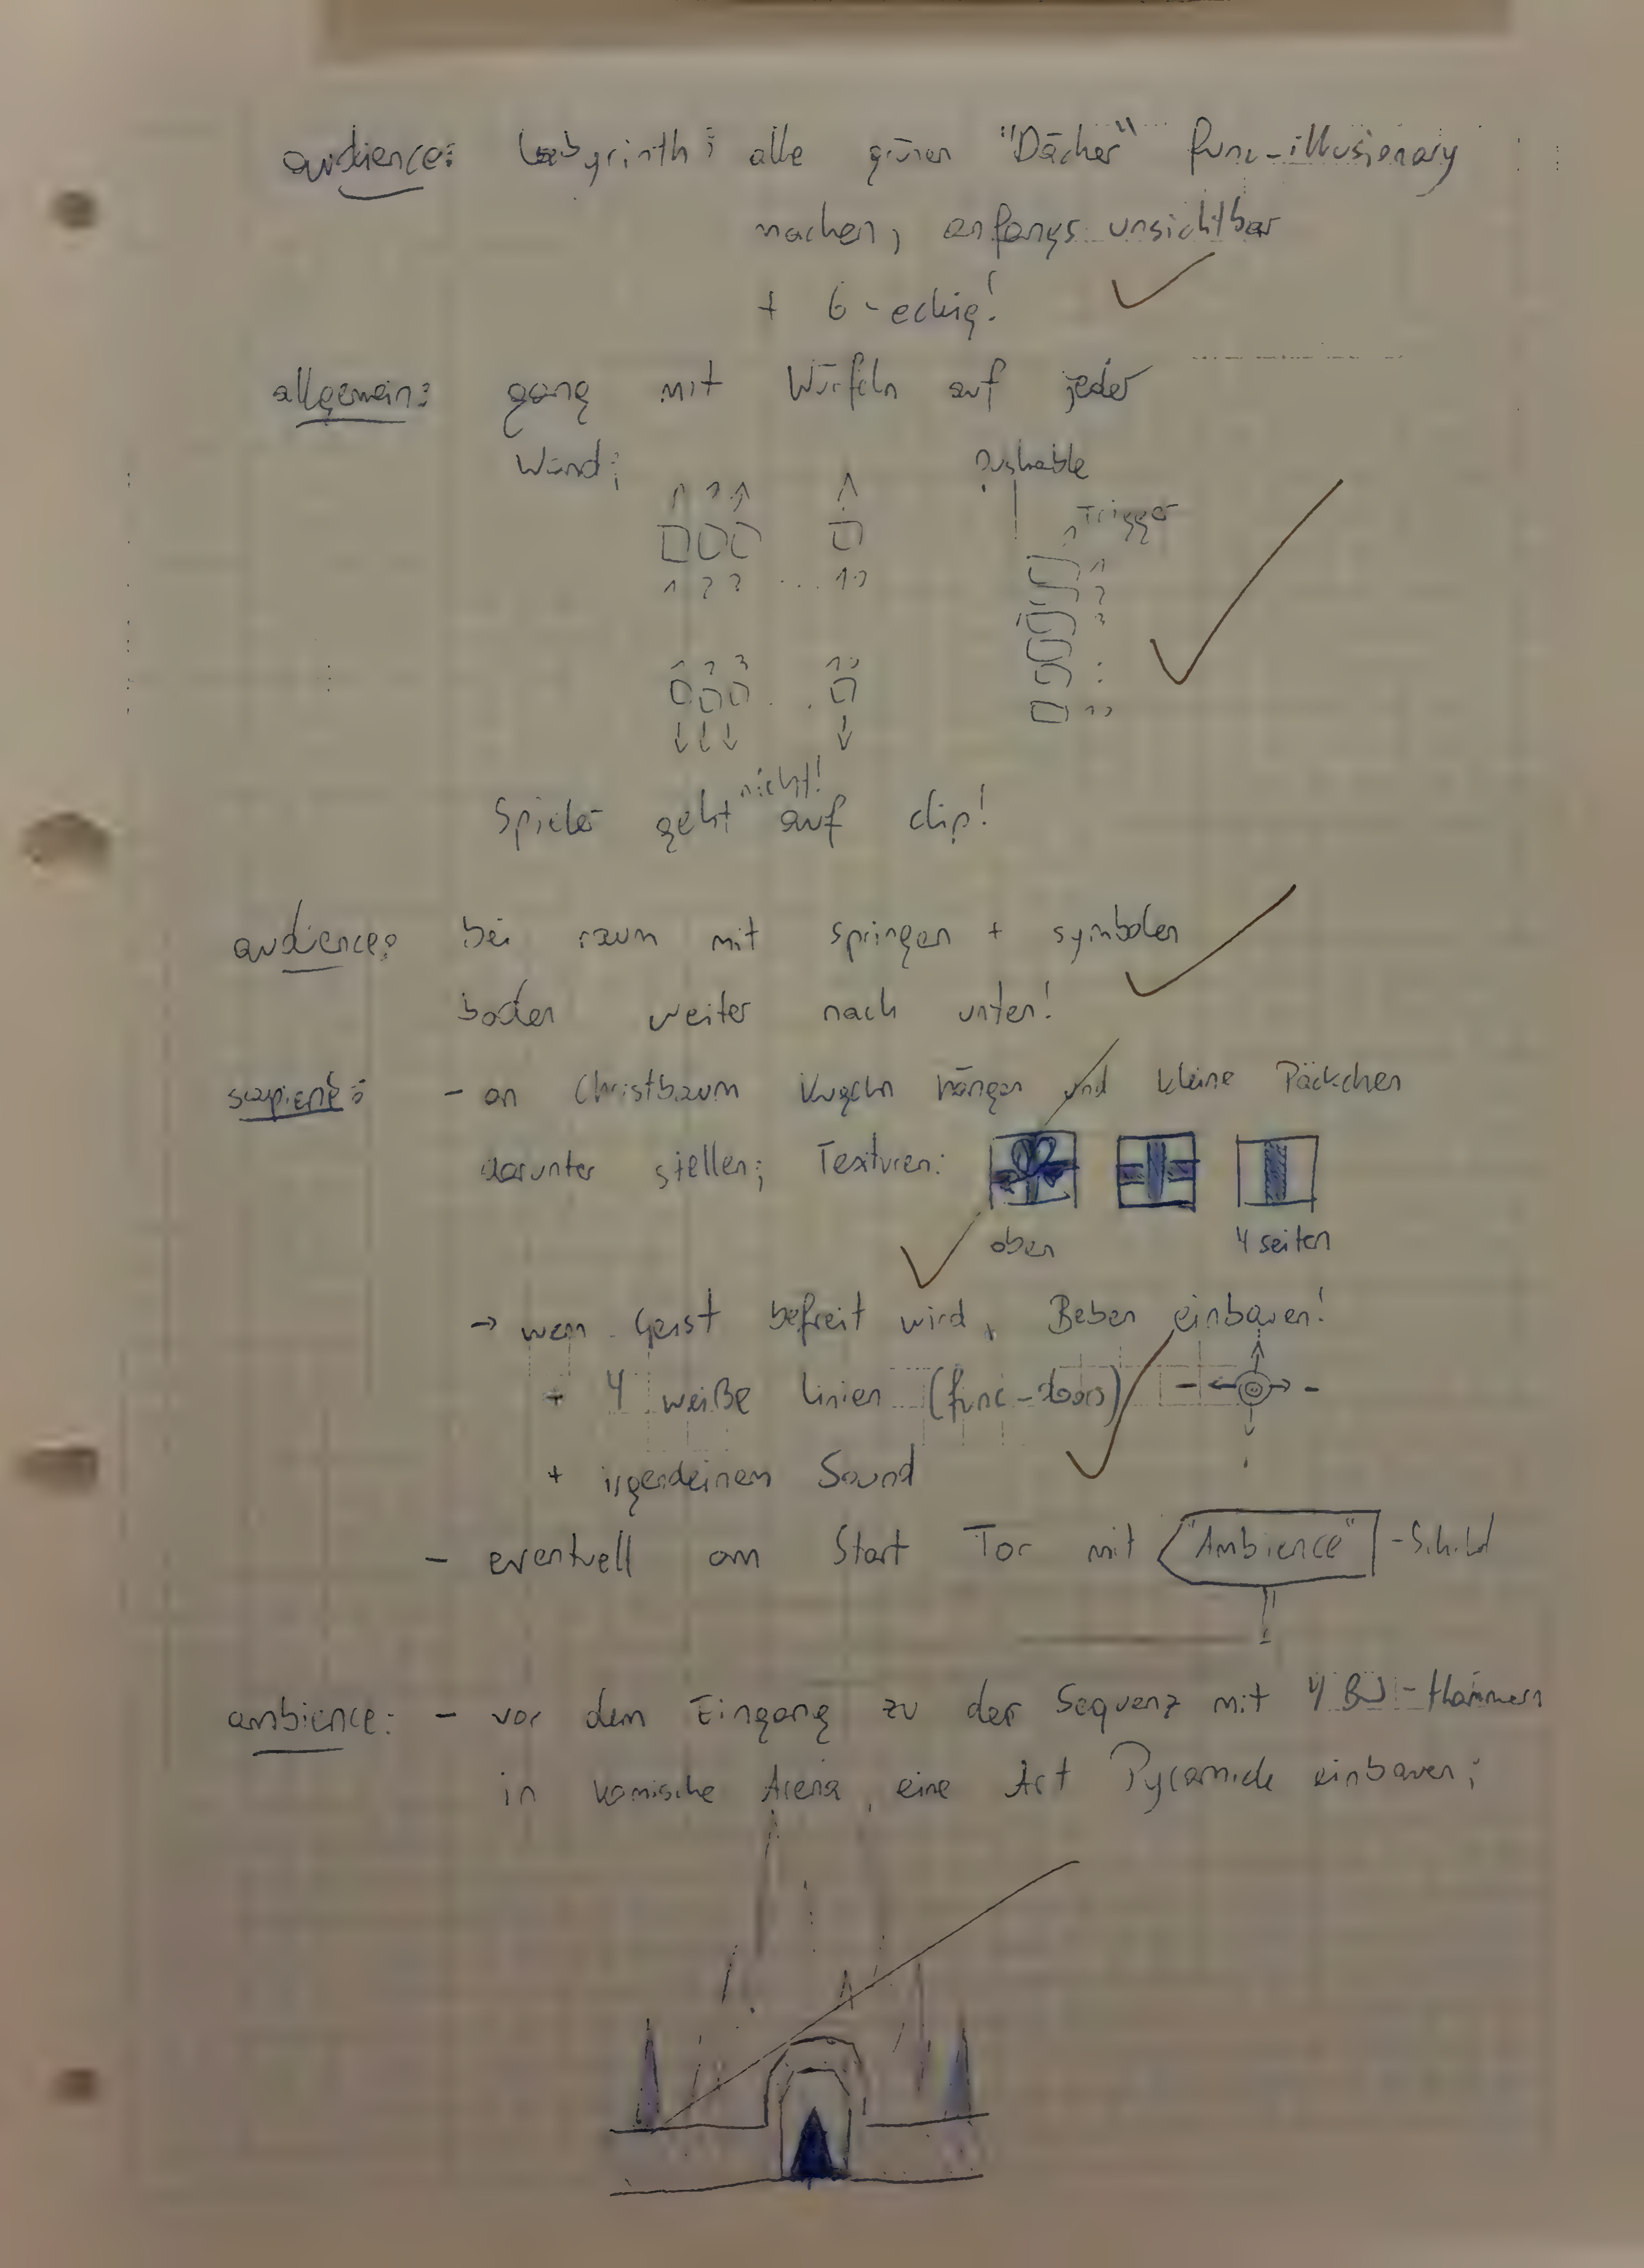 audience: Labyrinth; alle grünen "Dächer" func-illusionary
machen, anfangs unsichtbar
+ 6-eckig!
allgemein: gang mit Würfeln auf jeder
Wand; Pushable
Trigger
1 2 3 ... 10
1 2 3 . . 10
1
2
3
:
10
nicht!
Spieler geht auf clip!
audience: bei raum mit springen + symbolen
boden weiter nach unten!
- an Christbaum Kugeln hängen und kleine Päckchen
darunter stellen; Texturen:
oben 4 seiten
→ wenn Geist befreit wird, Beben einbauen!
+ 4 weiße Linien (func-doors)
+ irgendeinem Sound
- eventuell am Start Tor mit "Ambience" -Schild
ambience: - vor dem Eingang zu der Sequenz mit 4 -Hämmern
in komische Arena, eine Art Pyramide einbauen;